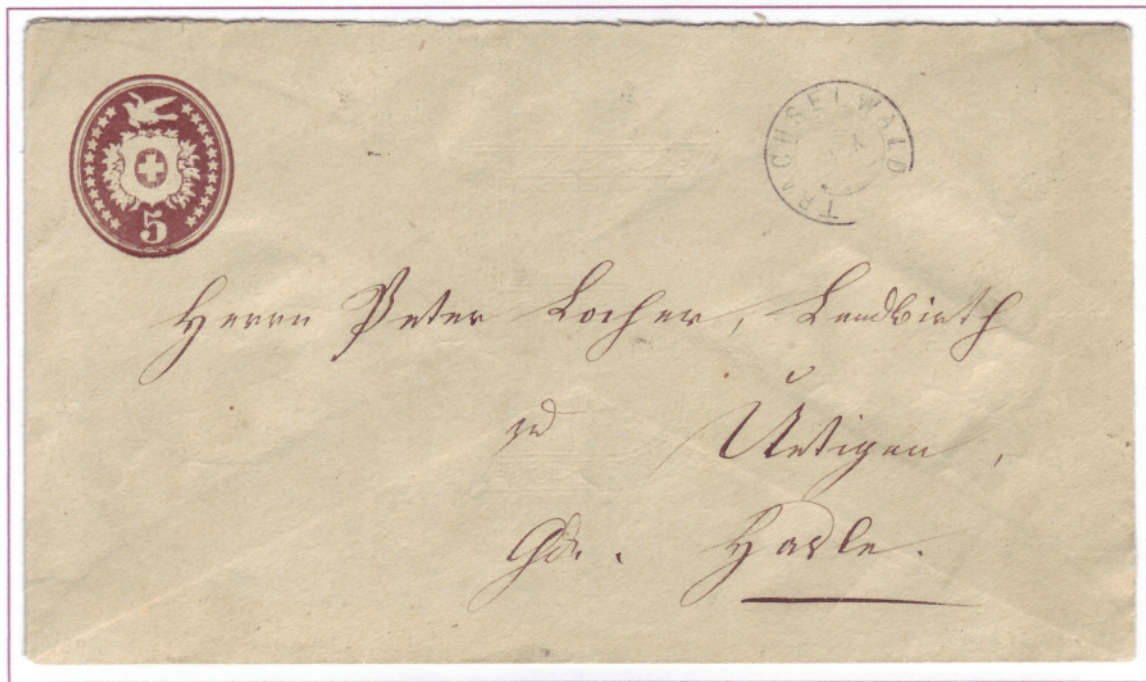 5
TRACHSELWALD
Herrn Peter Locher, Landwirth
zu Uetigen,
Gde. Hasle.